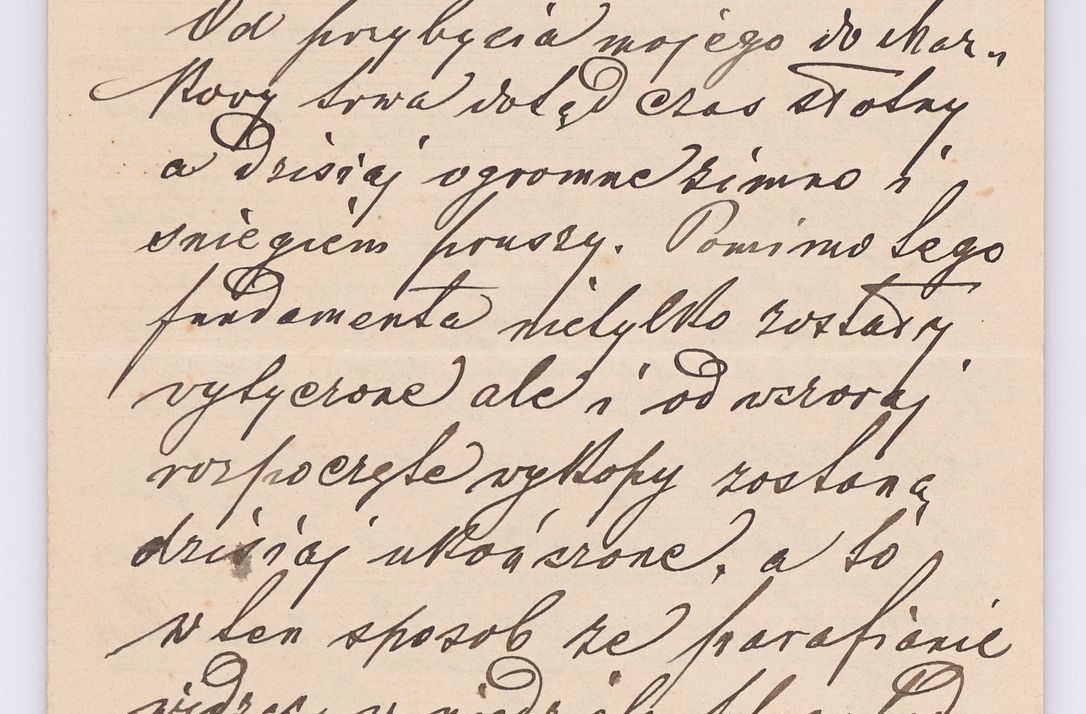 Od przybycia mojego do Mar„
kovy trwa dotąd czas słotny
a dzisiaj ogromne zimno i
śniegiem pruszy. Pomimo tego
fundamenta nietylko zostały
vytyczone ale i od wczoraj
rozpoczęte wykopy zostaną
dzisiaj ukończone, a to
w ten sposób że parafianie
widząc w niedzielę